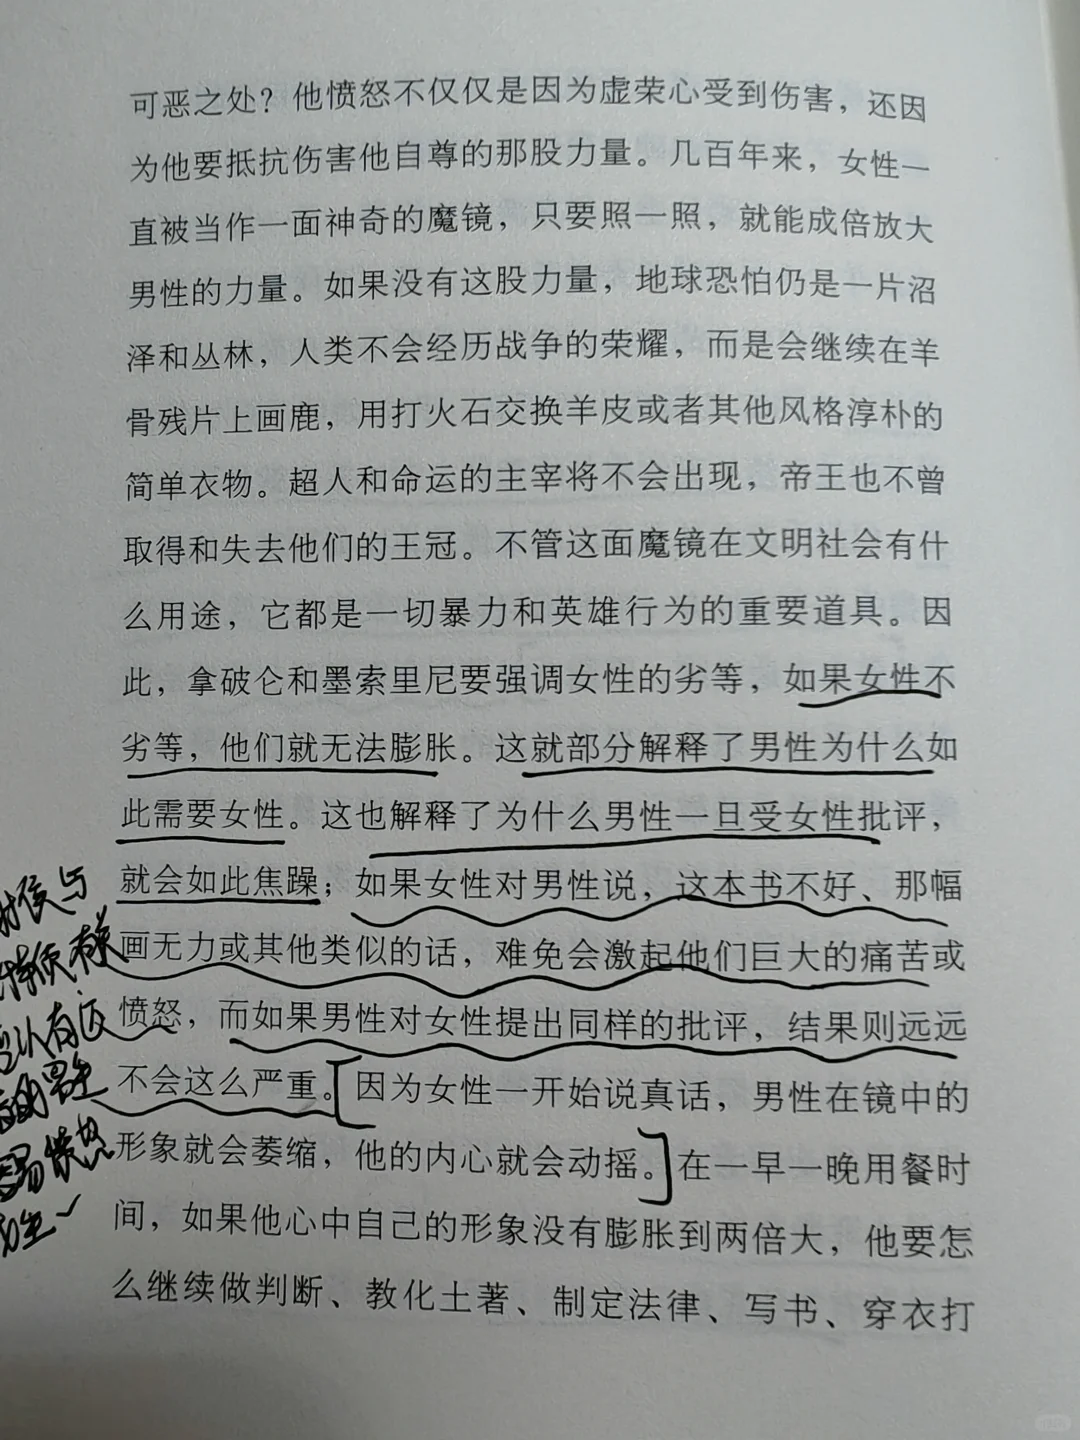 可恶之处？他愤怒不仅仅是因为虚荣心受到伤害，还因
为他要抵抗伤害他自尊的那股力量。几百年来，女性一
直被当作一面神奇的魔镜，只要照一照，就能成倍放大
男性的力量。如果没有这股力量，地球恐怕仍是一片沼
泽和丛林，人类不会经历战争的荣耀，而是会继续在羊
骨残片上画鹿，用打火石交换羊皮或者其他风格淳朴的
简单衣物。超人和命运的主宰将不会出现，帝王也不曾
取得和失去他们的王冠。不管这面魔镜在文明社会有什
么用途，它都是一切暴力和英雄行为的重要道具。因
此，拿破仑和墨索里尼要强调女性的劣等，如果女性不
劣等，他们就无法膨胀。这就部分解释了男性为什么如
此需要女性。这也解释了为什么男性一旦受女性批评，
就会如此焦躁；如果女性对男性说，这本书不好、那幅
画无力或其他类似的话，难免会激起他们巨大的痛苦或
愤怒，而如果男性对女性提出同样的批评，结果则远远
不会这么严重。因为女性一开始说真话，男性在镜中的
形象就会萎缩，他的内心就会动摇。在一早一晚用餐时
间，如果他心中自己的形象没有膨胀到两倍大，他要怎
么继续做判断、教化土著、制定法律、写书、穿衣打
时侯与